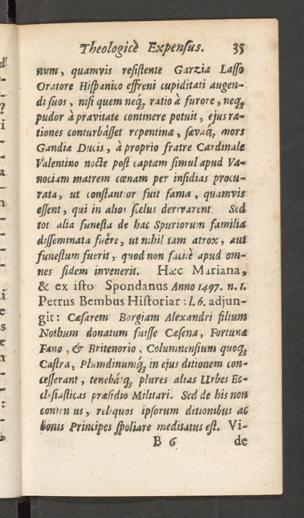 Theologicè Expensus. 35
num, quamvis resistente Garzia Lasso
Oratore Hispanico effreni cupiditati augen-
di suos, nisi quem neq; ratio à furore, neq;
pudor à pravitate continere potuit, ejus ra-
tiones conturbâsset repentina, sævaq; mors
Gandiæ Ducis, à proprio fratre Cardinale
Valentino nocte post captam simul apud Va-
nociam matrem cœnam per insidias procu-
rata, ut constantior fuit fama, quamvis
essent, qui in alios scelus derivarent. Sed
tot alia funesta de hac Spuriorum familia
dissemnata fuêre, ut nihil tam atrox, aut
funestum fuerit, quod non facilè apud om-
nes fidem invenerit. Hæc Mariana,
& ex isto Spondanus Anno 1497. n. 1.
Petrus Bembus Historiar: l. 6. adjun-
git: Cæsarem Borgiam Alexandri filium
Nothum donatum fuisse Cæsena, Fortunæ
Fano, & Britenorio, Columnensium quoq;
Castra, Plumdinumq; in ejus ditionem con-
cesserant, tenebatq; plures alias Urbes Ec-
clesiasticas præsidio Militari. Sed de his non
contentus, reliquos ipsorum ditionibus ac
bonis Principes spoliare meditatus est. Vi-
B 6 de